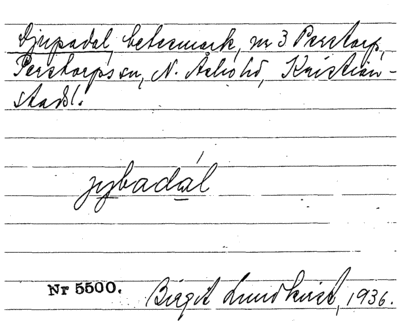 Djupadal, betesmark, nr 3 Perstorp,
Perstorps sn, N. Åsbo hd, Kristian-
stads l.
jybadál
Nr 5500.
Birgit Lundkvist, 1936.